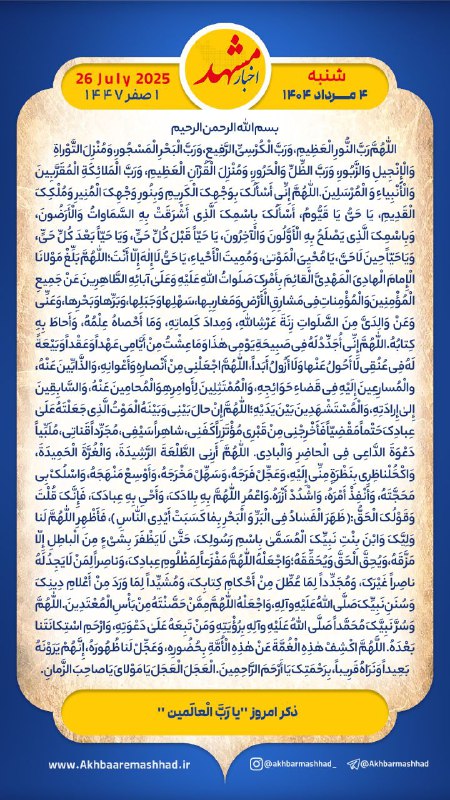 اخبار مشهد
26 July 2025
۱ صفر ۱۴۴۷
شنبه
۴ مـرداد ۱۴۰۴
بسم الله الرحمن الرحیم
اللّٰهُمَّ رَبَّ النُّورِ الْعَظِیمِ، وَرَبَّ الْکُرْسِیِّ الرَّفِیعِ، وَرَبَّ الْبَحْرِ الْمَسْجُورِ، وَمُنْزِلَ التَّوْراةِ
وَالْإِنْجِیلِ وَالزَّبُورِ، وَرَبَّ الظِّلِّ وَالْحَرُورِ، وَمُنْزِلَ الْقُرْآنِ الْعَظِیمِ، وَرَبَّ الْمَلائِکَةِ الْمُقَرَّبِینَ
وَالْأَنْبِیاءِ وَالْمُرْسَلِینَ. اللّٰهُمَّ إِنِّی أَسْأَلُکَ بِوَجْهِکَ الْکَرِیمِ وَبِنُورِ وَجْهِکَ الْمُنِیرِ وَمُلْکِکَ
الْقَدِیمِ، یَا حَیُّ یَا قَیُّومُ، أَسْأَلُکَ بِاسْمِکَ الَّذِی أَشْرَقَتْ بِهِ السَّمَاوَاتُ وَالْأَرَضُونَ،
وَبِاسْمِکَ الَّذِی یَصْلَحُ بِهِ الْأَوَّلُونَ وَالْآخِرُونَ، یَا حَیّاً قَبْلَ کُلِّ حَیٍّ، وَیَا حَیّاً بَعْدَ کُلِّ حَیٍّ،
وَیَا حَیّاً حِینَ لَا حَیَّ، یَا مُحْیِیَ الْمَوْتیٰ، وَمُمِیتَ الْأَحْیاءِ، یَا حَیُّ لَا إِلٰهَ إِلّا أَنْتَ؛ اللّٰهُمَّ بَلِّغْ مَوْلانَا
الْإِمامَ الْهادِیَ الْمَهْدِیَّ الْقائِمَ بِأَمْرِکَ صَلَواتُ اللّٰهِ عَلَیْهِ وَعَلَیٰ آبائِهِ الطَّاهِرِینَ عَنْ جَمِیعِ
الْمُؤْمِنِینَ وَالْمُؤْمِناتِ فِی مَشارِقِ الْأَرْضِ وَمَغارِبِها، سَهْلِها وَجَبَلِها، وَبَرِّها وَبَحْرِها، وَعَنِّی
وَعَنْ وَالِدَیَّ مِنَ الصَّلَواتِ زِنَةَ عَرْشِ اللّٰهِ، وَمِدادَ کَلِماتِهِ، وَمَا أَحْصاهُ عِلْمُهُ، وَأَحاطَ بِهِ
کِتابُهُ. اللّٰهُمَّ إِنِّی أُجَدِّدُ لَهُ فِی صَبِیحَةِ یَوْمِی هٰذَا وَمَا عِشْتُ مِنْ أَیَّامِی عَهْداً وَعَقْداً وَبَیْعَةً
لَهُ فِی عُنُقِی لَا أَحُولُ عَنْها وَلَا أَزُولُ أَبَداً. اللّٰهُمَّ اجْعَلْنِی مِنْ أَنْصارِهِ وَأَعْوانِهِ، وَالذَّابِّینَ عَنْهُ،
وَالْمُسارِعِینَ إِلَیْهِ فِی قَضاءِ حَوَائِجِهِ، وَالْمُمْتَثِلِینَ لِأَوامِرِهِ وَالْمُحامِینَ عَنْهُ، وَالسَّابِقِینَ
إِلیٰ إِرادَتِهِ، وَالْمُسْتَشْهَدِینَ بَیْنَ یَدَیْهِ؛ اللّٰهُمَّ إِنْ حالَ بَیْنِی وَبَیْنَهُ الْمَوْتُ الَّذِی جَعَلْتَهُ عَلَیٰ
عِبادِکَ حَتْماً مَقْضِیّاً فَأَخْرِجْنِی مِنْ قَبْرِی مُؤْتَزِراً کَفَنِی، شاهِراً سَیْفِی، مُجَرِّداً قَناتِی، مُلَبِّیاً
دَعْوَةَ الدَّاعِی فِی الْحاضِرِ وَالْبادِی. اللّٰهُمَّ أَرِنِی الطَّلْعَةَ الرَّشِیدَةَ، وَالْغُرَّةَ الْحَمِیدَةَ،
وَاکْحُلْ ناظِرِی بِنَظْرَةٍ مِنِّی إِلَیْهِ، وَعَجِّلْ فَرَجَهُ، وَسَهِّلْ مَخْرَجَهُ، وَأَوْسِعْ مَنْهَجَهُ، وَاسْلُکْ بِی
مَحَجَّتَهُ، وَأَنْفِذْ أَمْرَهُ، وَاشْدُدْ أَزْرَهُ. وَاعْمُرِ اللّٰهُمَّ بِهِ بِلادَکَ، وَأَحْیِ بِهِ عِبادَکَ، فَإِنَّکَ قُلْتَ
وَقَوْلُکَ الْحَقُّ: ﴿ظَهَرَ الْفَسادُ فِی الْبَرِّ وَ الْبَحْرِ بِما کَسَبَتْ أَیْدِی النَّاسِ﴾، فَأَظْهِرِ اللّٰهُمَّ لَنا
وَلِیَّکَ وَابْنَ بِنْتِ نَبِیِّکَ الْمُسَمَّیٰ بِاسْمِ رَسُولِکَ، حَتَّیٰ لَا یَظْفَرَ بِشَیْءٍ مِنَ الْباطِلِ إِلّا
مَزَّقَهُ، وَیُحِقَّ الْحَقَّ وَیُحَقِّقَهُ؛ وَاجْعَلْهُ اللّٰهُمَّ مَفْزَعاً لِمَظْلُومِ عِبادِکَ، وَناصِراً لِمَنْ لَا یَجِدُ لَهُ
ناصِراً غَیْرَکَ، وَمُجَدِّداً لِمَا عُطِّلَ مِنْ أَحْکامِ کِتابِکَ، وَمُشَیِّداً لِمَا وَرَدَ مِنْ أَعْلامِ دِینِکَ
وَسُنَنِ نَبِیِّکَ صَلَّی اللّٰهُ عَلَیْهِ وَآلِهِ، وَاجْعَلْهُ اللّٰهُمَّ مِمَّنْ حَصَّنْتَهُ مِنْ بَأْسِ الْمُعْتَدِینَ. اللّٰهُمَّ
وَسُرَّ نَبِیَّکَ مُحَمَّداً صَلَّی اللّٰهُ عَلَیْهِ وَآلِهِ بِرُؤْیَتِهِ وَمَنْ تَبِعَهُ عَلَیٰ دَعْوَتِهِ، وَارْحَمِ اسْتِکانَتَنا
بَعْدَهُ. اللّٰهُمَّ اکْشِفْ هٰذِهِ الْغُمَّةَ عَنْ هٰذِهِ الْأُمَّةِ بِحُضُورِهِ، وَعَجِّلْ لَنا ظُهُورَهُ، إِنَّهُمْ یَرَوْنَهُ
بَعِیداً وَنَرَاهُ قَرِیباً، بِرَحْمَتِکَ یَا أَرْحَمَ الرَّاحِمِینَ. الْعَجَلَ الْعَجَلَ یَا مَوْلایَ یَا صاحِبَ الزَّمانِ.
ذکر امروز "یا رَبَّ الْعالَمین"
www.Akhbaaremashhad.ir
@akhbarmashhad_
@Akhbarmashhad